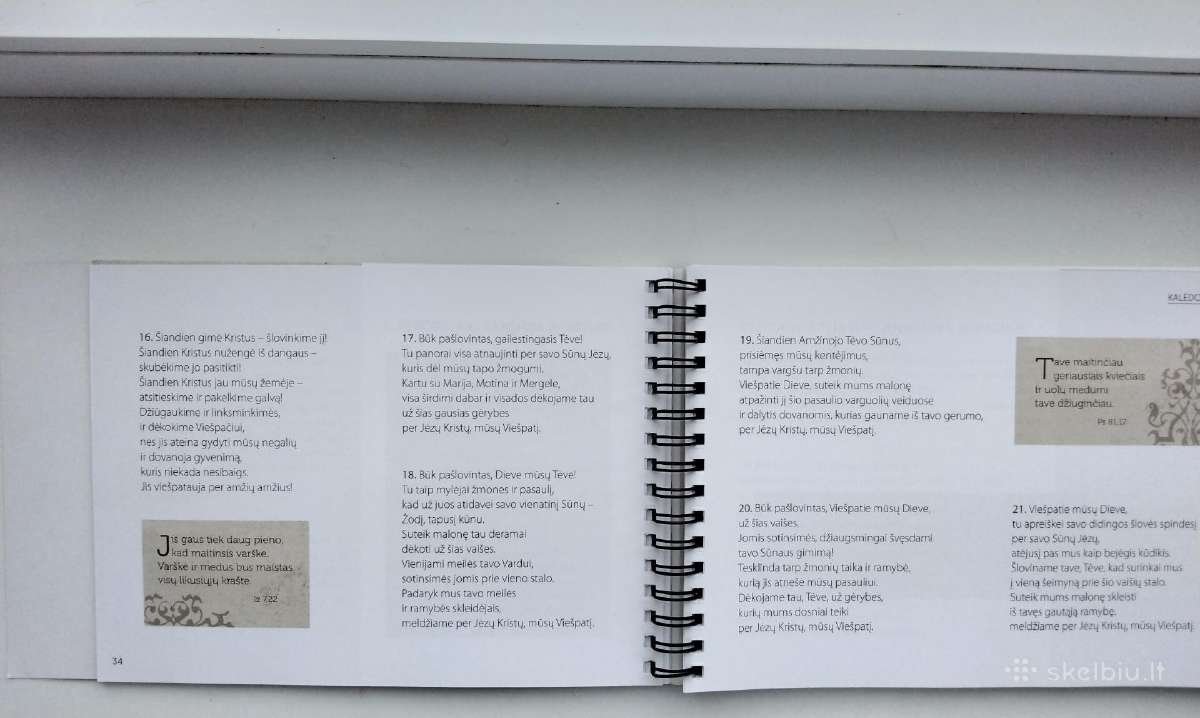 16. Šiandien gimė Kristus – šlovinkime jį!
Šiandien Kristus nužengė iš dangaus –
skubėkime jo pasitikti!
Šiandien Kristus jau mūsų žemėje –
atsitieskime ir pakelkime galvą!
Džiūgaukime ir linksminkimės,
ir dėkokime Viešpačiui,
nes jis ateina gydyti mūsų negalių
ir dovanoja gyvenimą,
kuris niekada nesibaigs.
Jis viešpatauja per amžių amžius!
Jis gaus tiek daug pieno,
kad maitinsis varške.
Varškė ir medus bus maistas
visų likusiųjų krašte.
Iz 7,22
34
17. Būk pašlovintas, gailestingasis Tėve!
Tu panorai visa atnaujinti per savo Sūnų Jėzų,
kuris dėl mūsų tapo žmogumi.
Kartu su Marija, Motina ir Mergele,
visa širdimi dabar ir visados dėkojame tau
už šias gausias gėrybes
per Jėzų Kristų, mūsų Viešpatį.
18. Būk pašlovintas, Dieve mūsų Tėve!
Tu taip mylėjai žmones ir pasaulį,
kad už juos atidavei savo vienatinį Sūnų –
Žodį, tapusį kūnu.
Suteik malonę tau deramai
dėkoti už šias vaišes.
Vienijami meilės tavo Vardui,
sotinsimės jomis prie vieno stalo.
Padaryk mus tavo meilės
ir ramybės skleidėjais,
meldžiame per Jėzų Kristų, mūsų Viešpatį.
KALĖDO
19. Šiandien Amžinojo Tėvo Sūnus,
prisiėmęs mūsų kentėjimus,
tampa vargšu tarp žmonių.
Viešpatie Dieve, suteik mums malonę
atpažinti jį šio pasaulio varguolių veiduose
ir dalytis dovanomis, kurias gauname iš tavo gerumo,
per Jėzų Kristų, mūsų Viešpatį.
Tave maitinčiau
geriausiais kviečiais
ir uolų medumi
tave džiuginčiau.
Ps 81,17
20. Būk pašlovintas, Viešpatie mūsų Dieve,
už šias vaišes.
Jomis sotinsimės, džiaugsmingai švęsdami
tavo Sūnaus gimimą!
Tesklinda tarp žmonių taika ir ramybė,
kurią jis atnešė mūsų pasauliui.
Dėkojame tau, Tėve, už gėrybes,
kurių mums dosniai teiki
per Jėzų Kristų, mūsų Viešpatį.
21. Viešpatie mūsų Dieve,
tu apreiškei savo didingos šlovės spindesį
per savo Sūnų Jėzų,
atėjusį pas mus kaip bejėgis kūdikis.
Šloviname tave, Tėve, kad surinkai mus
į vieną šeimyną prie šio vaišių stalo.
Suteik mums malonę skleisti
iš tavęs gautąją ramybę,
meldžiame per Jėzų Kristų, mūsų Viešpatį.
skelbiu.lt